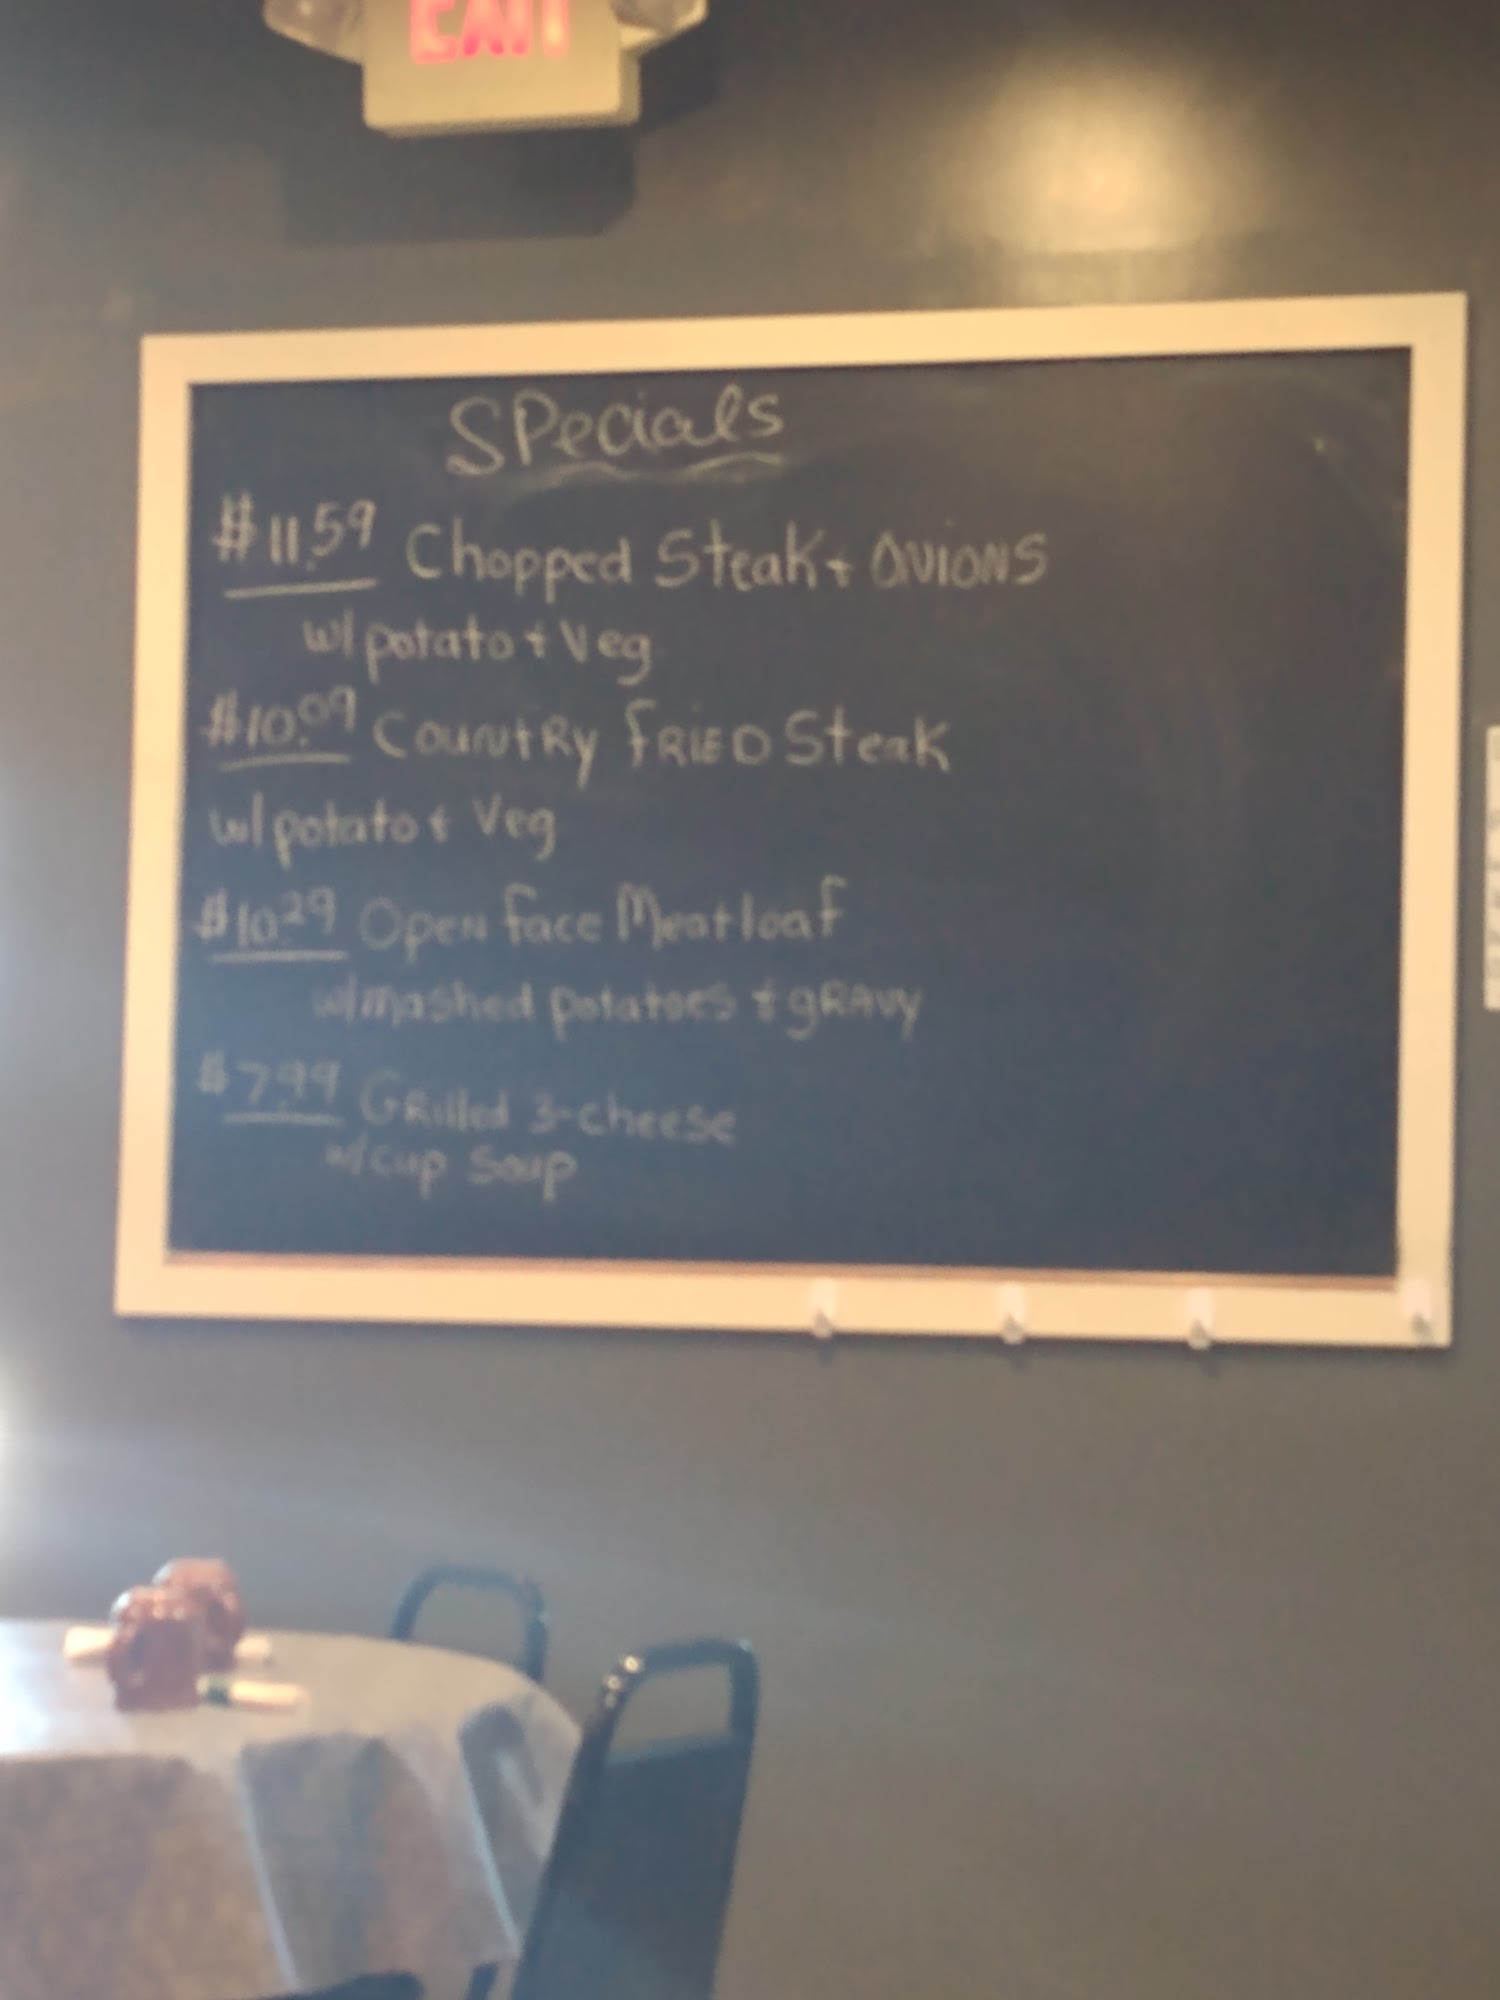 EXIT
Specials
$11.59 Chopped Steak + ONIONS
w/ potato & Veg
$10.09 COUNTRY FRIED Steak
w/ potato & Veg
$10.29 Open face Meatloaf
w/ mashed potatoes & gRAVY
$7.99 GRilled 3-cheese
w/ cup Soup